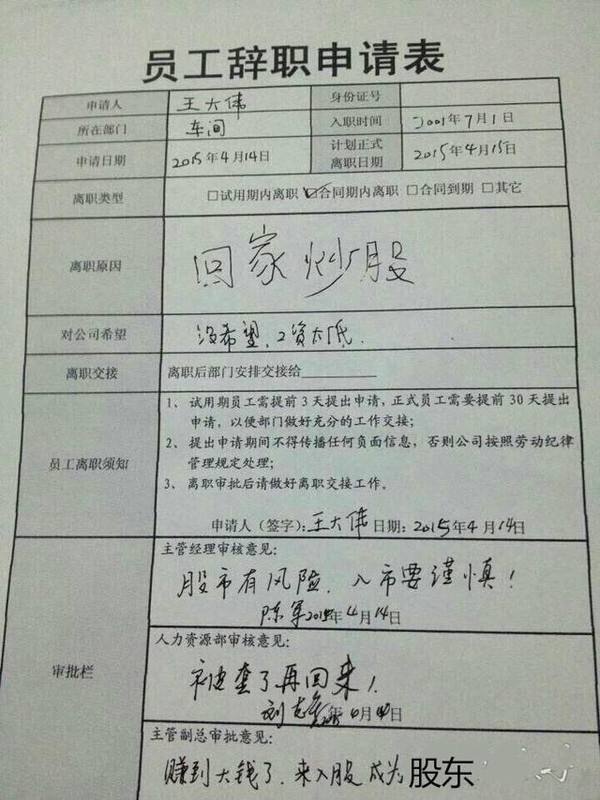 员工辞职申请表
申请人 王大伟 身份证号
所在部门 车间 入职时间 2001年7月1日
申请日期 2015年4月14日 计划正式离职日期 2015年4月15日
离职类型 □试用期内离职 ☑合同期内离职 □合同到期 □其它
离职原因 回家炒股
对公司希望 没希望,工资太低.
离职交接 离职后部门安排交接给
员工离职须知
1、试用期员工需提前3天提出申请,正式员工需要提前30天提出
申请,以便部门做好充分的工作交接;
2、提出申请期间不得传播任何负面信息,否则公司按照劳动纪律
管理规定处理;
3、离职审批后请做好离职交接工作。
申请人(签字):王大伟 日期:2015年4月14日
审批栏
主管经理审核意见:
股市有风险、入市要谨慎!
陈军 2015年4月14日
人力资源部审核意见:
被套了再回来!
年 月 日
主管副总审批意见:
赚到大钱了,来入股成为股东